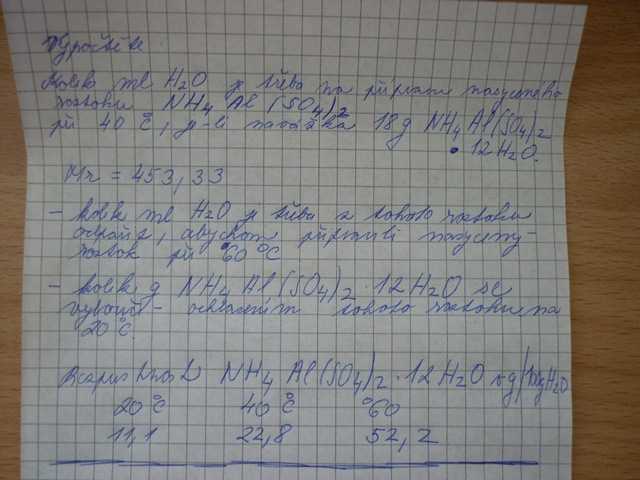 Vypočtěte
Kolik ml H2O je třeba na přípravu nasyceného
roztoku NH4 Al (SO4)2
při 40 °C, je-li navážka 18g NH4 Al(SO4)2
• 12H2O.
Mr = 453,33
- kolik ml H2O je třeba z tohoto roztoku
odpařit, abychom připravili nasycený
roztok při 60 °C
- kolik g NH4 Al(SO4)2 · 12H2O se
vyloučí - ochlazením tohoto roztoku na
20 °C.
Rozpustnost NH4 Al(SO4)2 · 12H2O v g/100g H2O
20 °C 40 °C °60
11,1 22,8 52,2